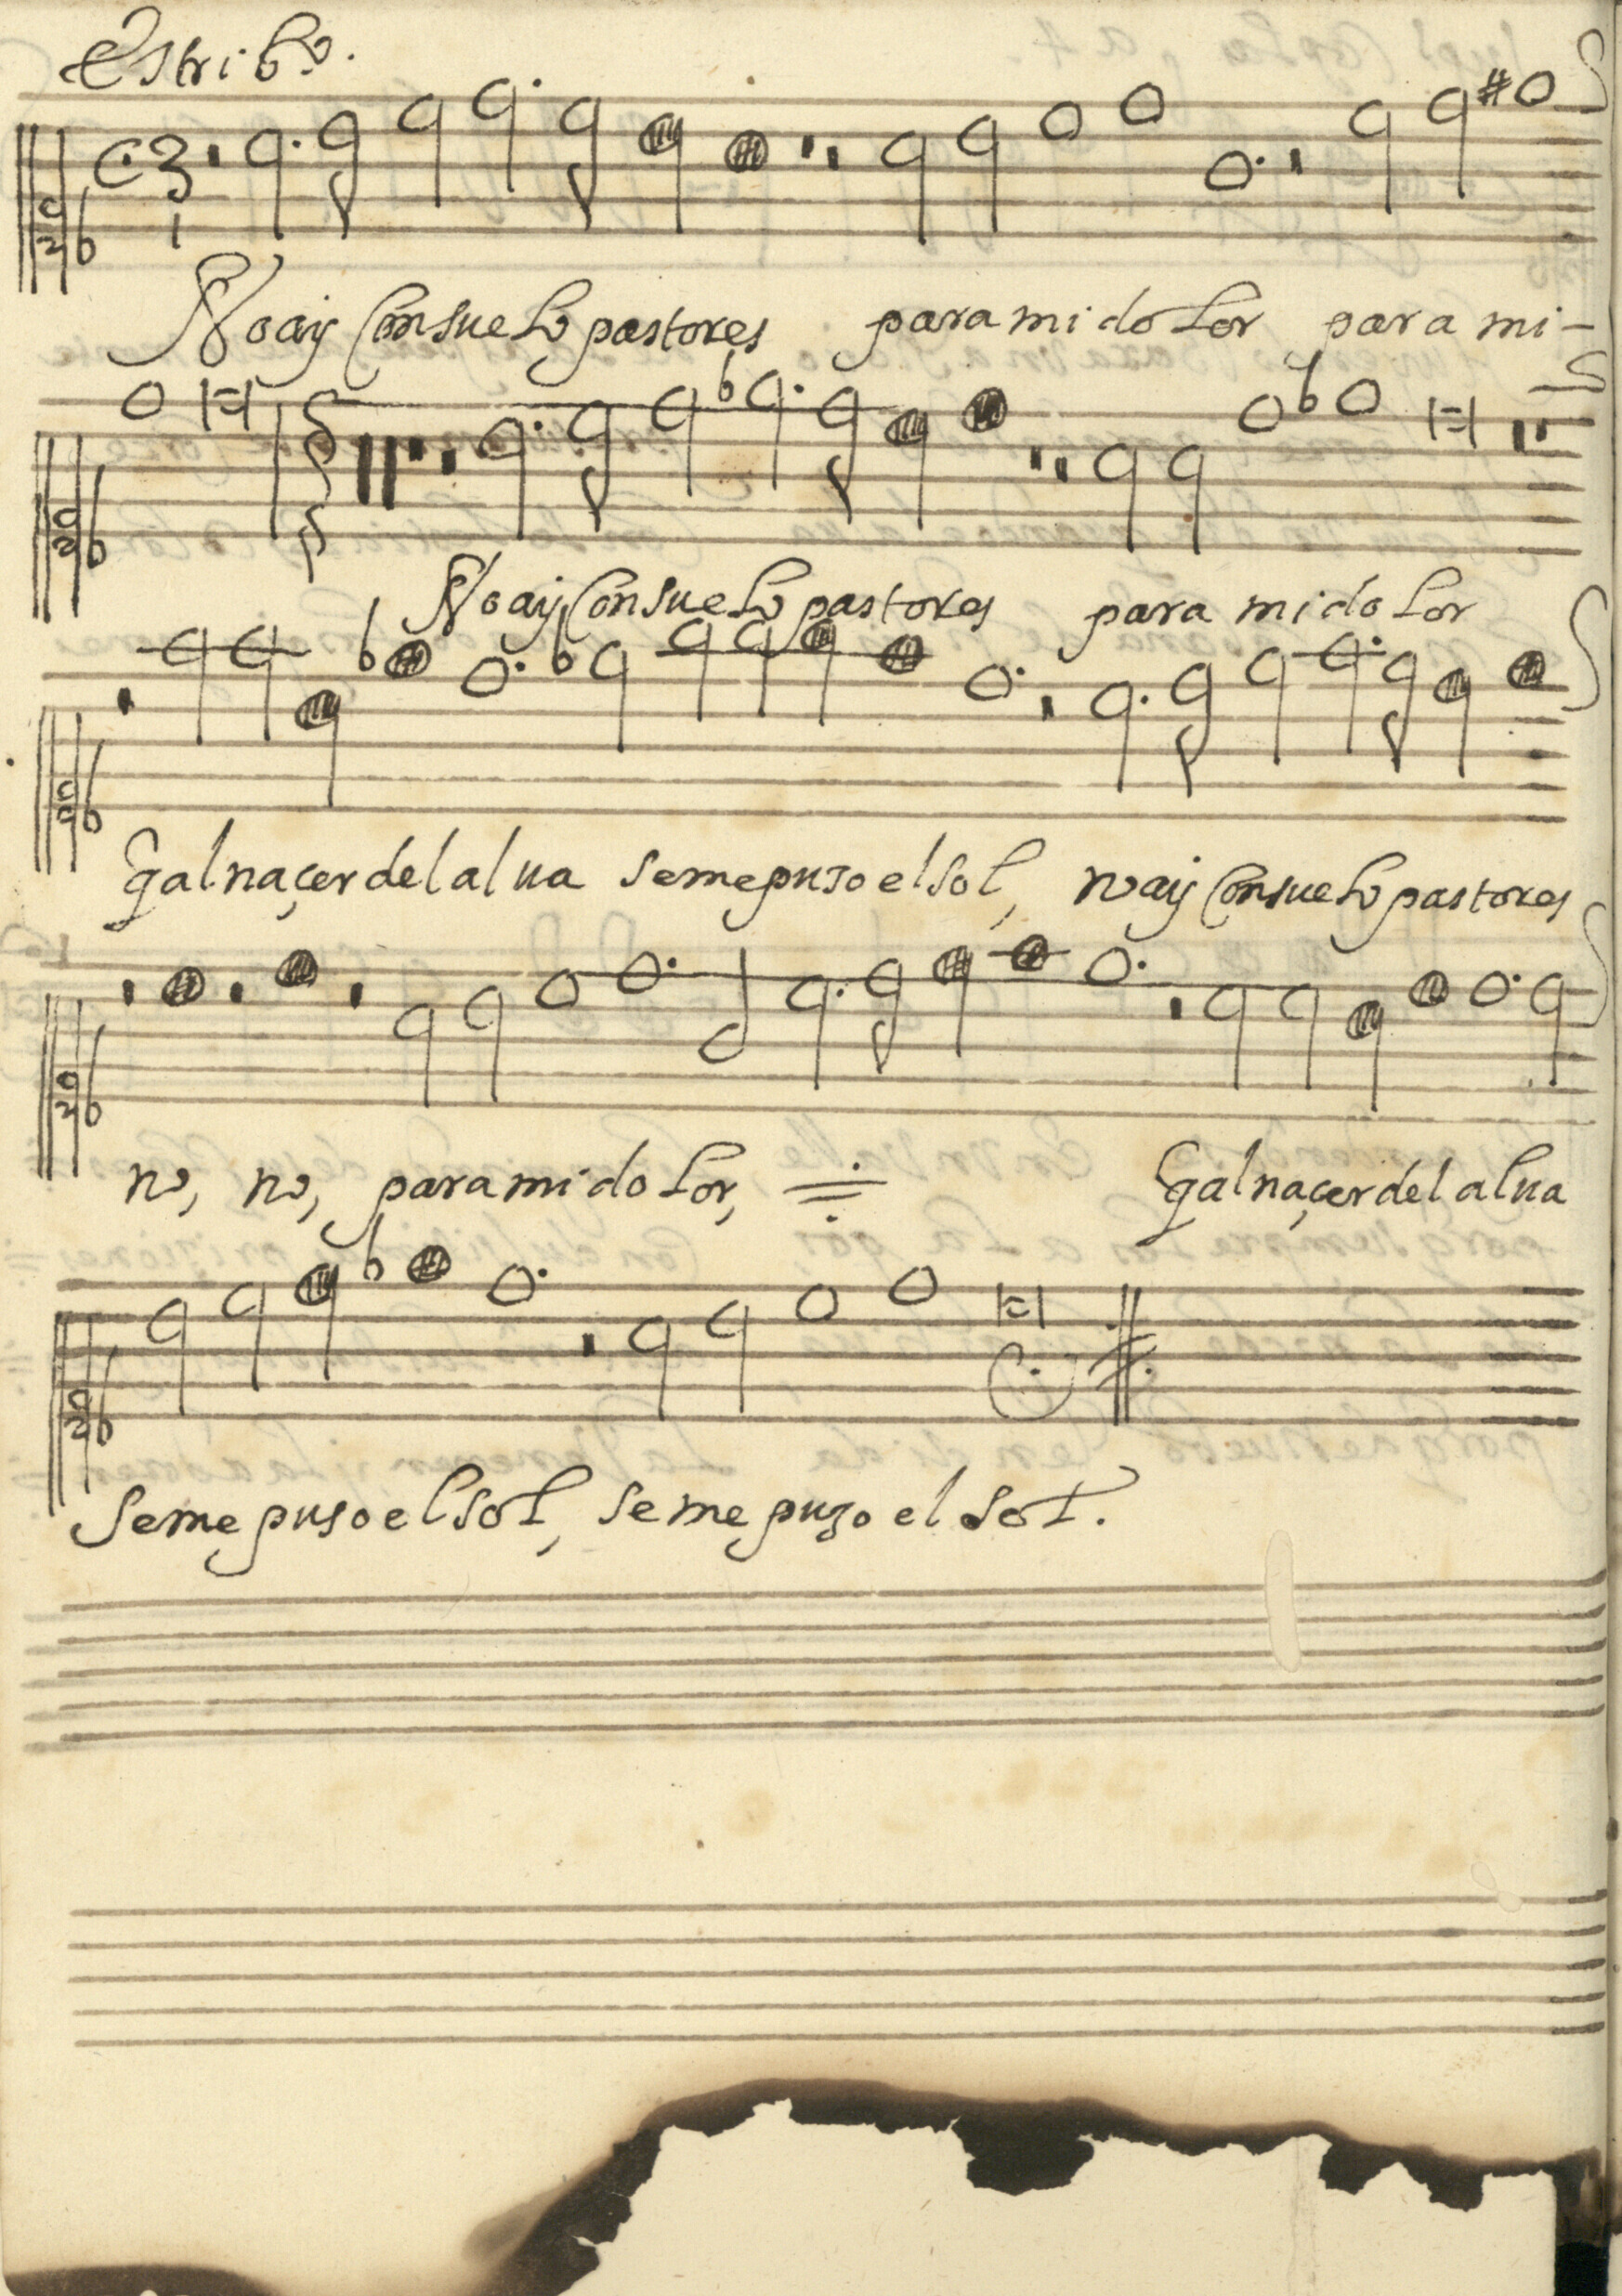 Estribo.
No ay Consuelo pastores para mi dolor para mi-
No ay Consuelo pastores para mi dolor
q al naçer del alua se me puso el sol, no ay Consuelo pastores
no, no, para mi dolor, q al naçer del alua
se me puso el sol, se me puso el sol.